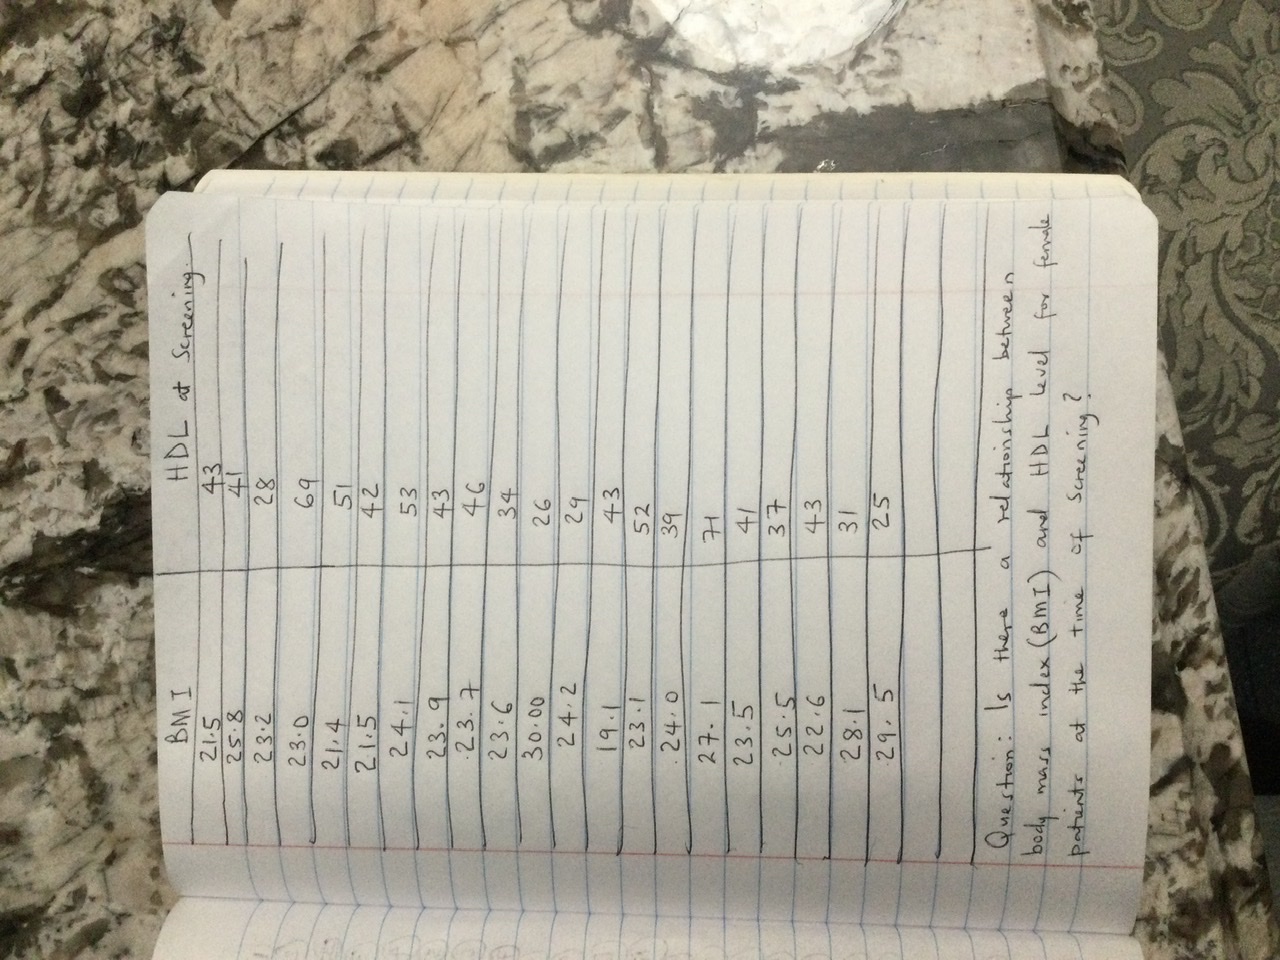 BMI HDL at Screening.
21.5 43
25.8 41
23.2 28
23.0 69
21.4 51
21.5 42
24.1 53
23.9 43
23.7 46
23.6 34
30.00 26
24.2 29
19.1 43
23.1 52
24.0 39
27.1 71
23.5 41
25.5 37
22.6 43
28.1 31
29.5 25
Question: Is there a relationship between
body mass index (BMI) and HDL level for female
patients at the time of Screening?